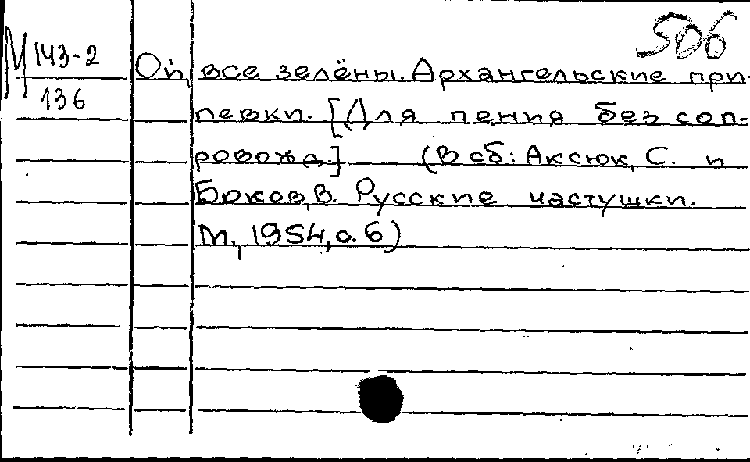 506
М 143-2
136
Ой, все зелёны. Архангельские при-
певки. [Для пения без соп-
ровожд.] (В сб.: Аксюк, С. и
Боков, В. Русские частушки.
М., 1954, с. 6)